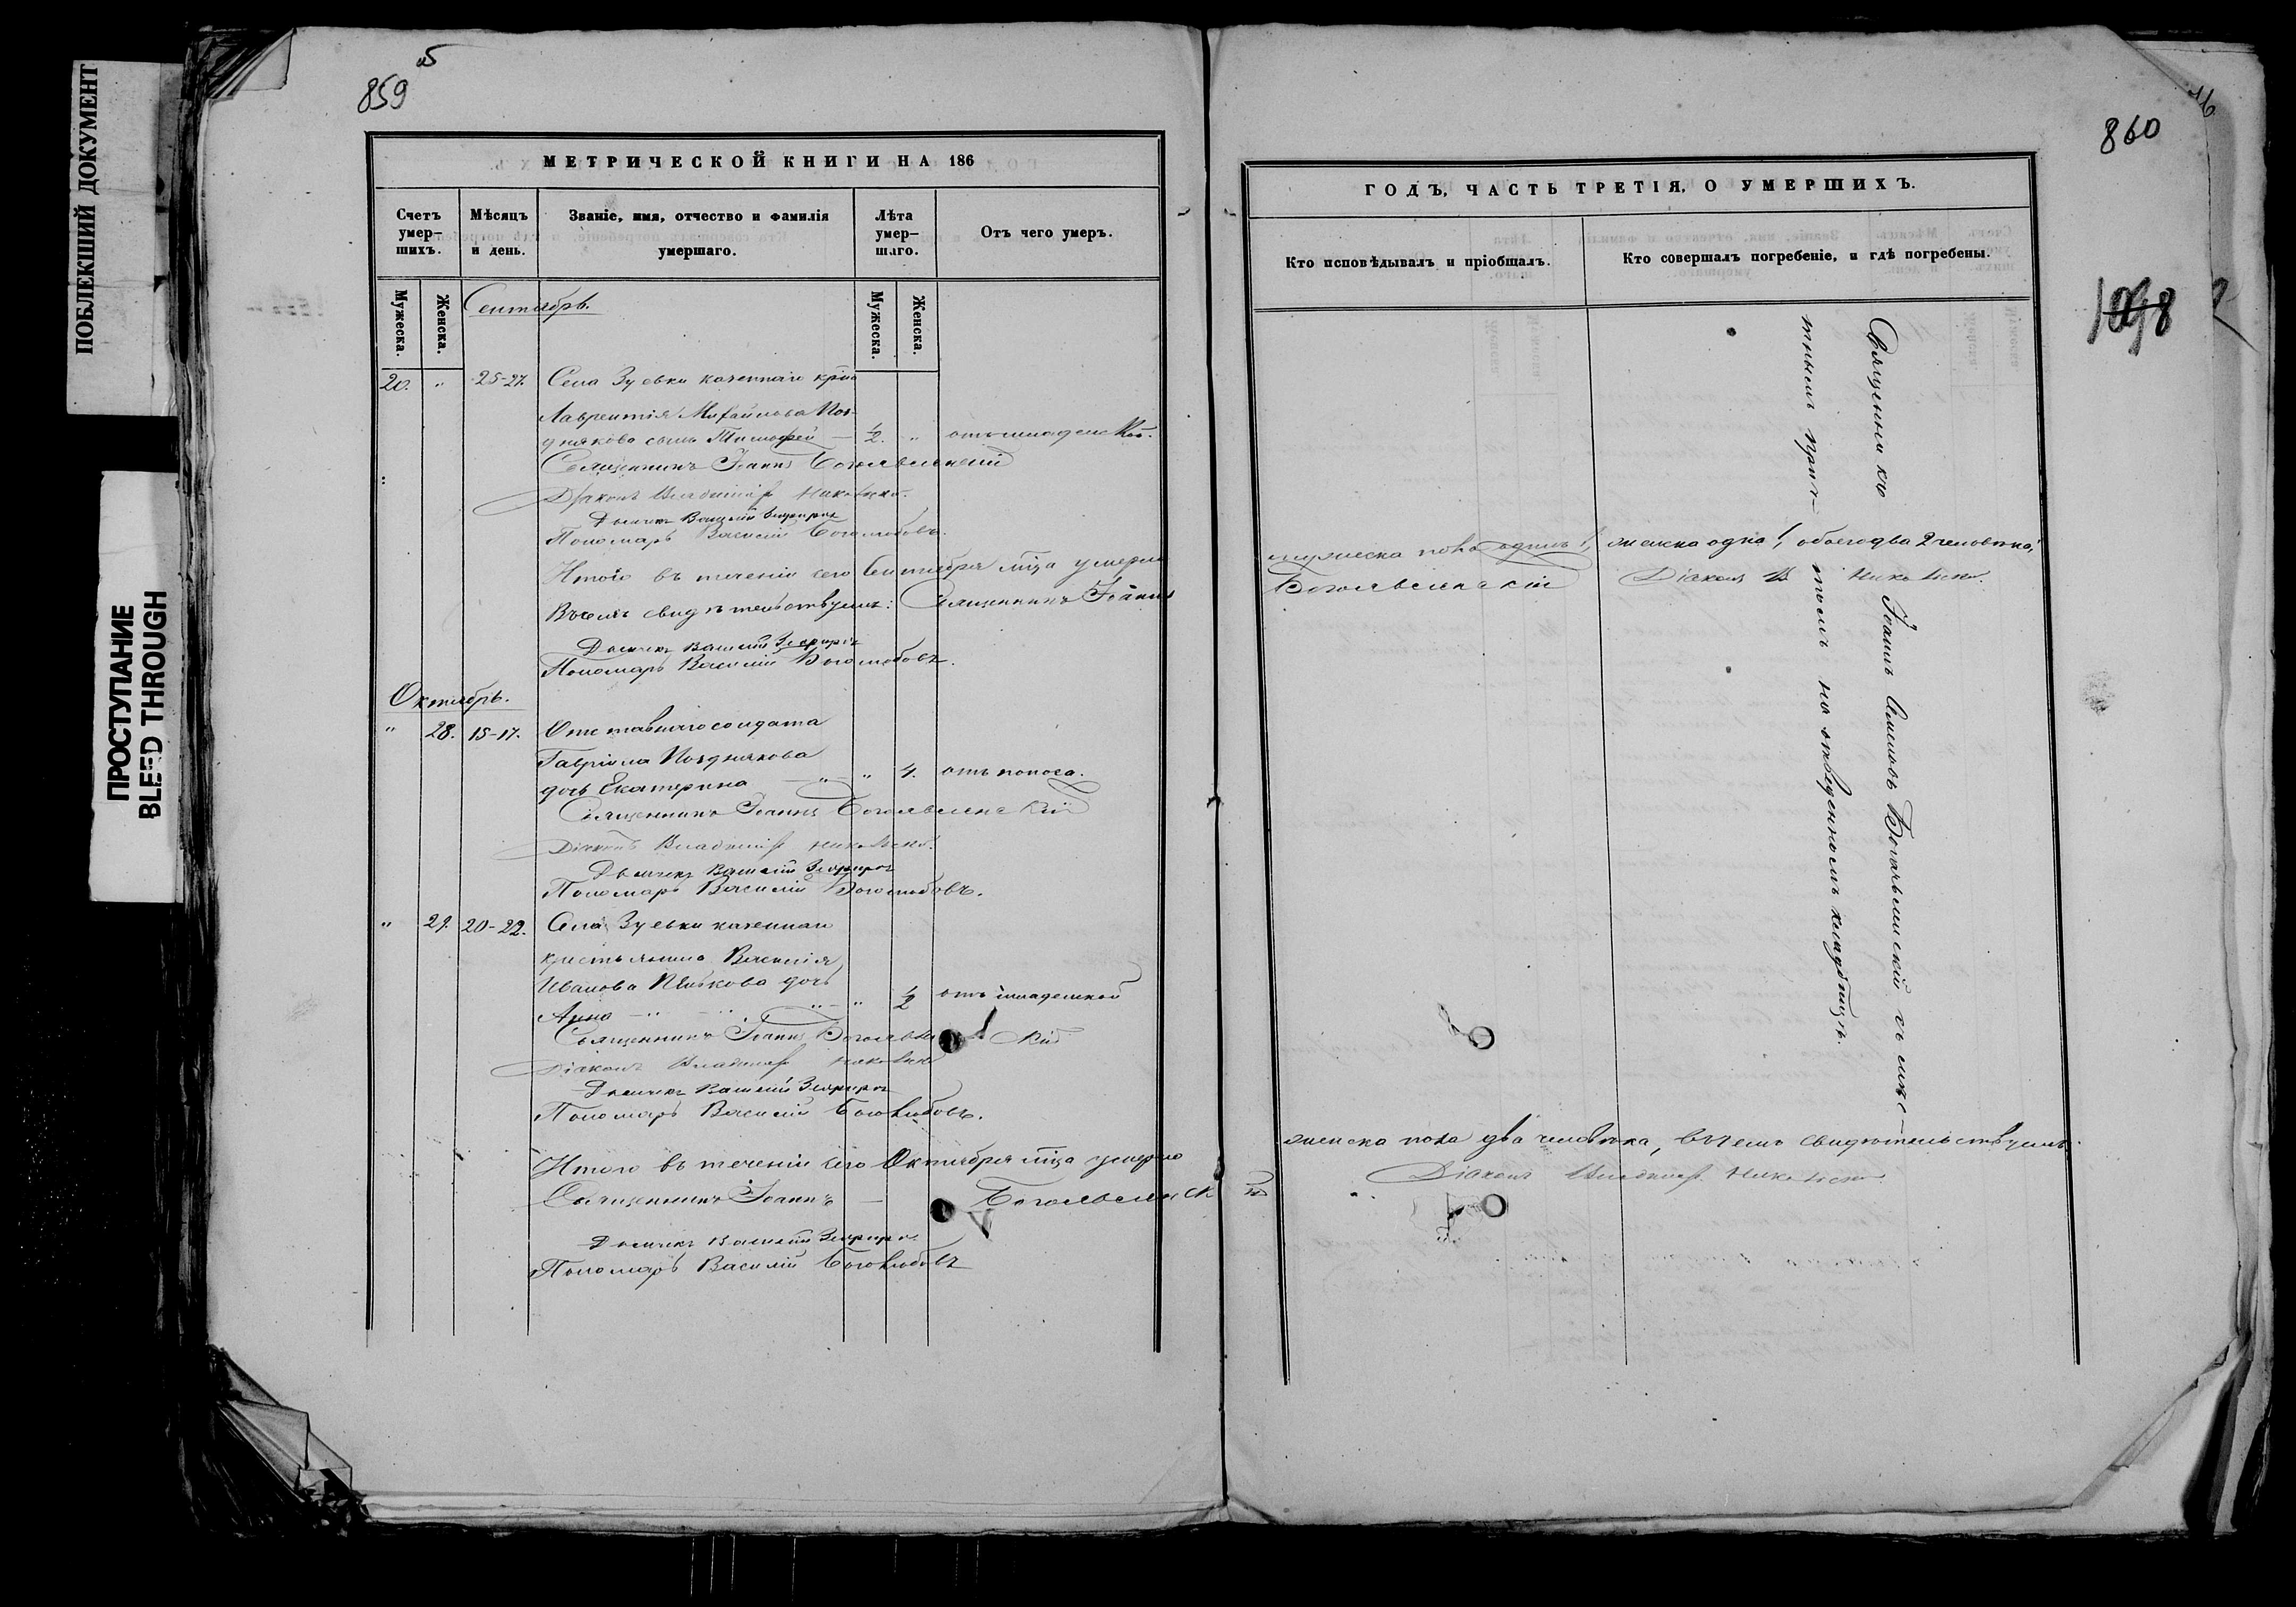 ПОБЛЕКШИЙ ДОКУМЕНТ
ПРОСТУПАНИЕ
BLEED THROUGH
5
859
МЕТРИЧЕСКОЙ КНИГИ НА 186
Счетъ умер-шихъ.
Мѣсяцъ и день.
Званіе, имя, отчество и фамилія умершаго.
Лѣта умер-шаго.
Отъ чего умеръ.
Мужеска.
Женска.
Мужеска.
Женска.
Сентябрь.
20. " 25-27. Села Зуевки казеннаго
Лаврентія Михайлова Поз-
днякова сынъ Тимофей — 1/2. " отъ младенской.
Священникъ Іоаннъ Богоявленскій
Діаконъ Владиміръ Никольскій.
Дьячекъ Василій
Пономарь Василій Боголюбовъ.
Итого въ теченіи сего Сентября мѣсца умерло
Въ чемъ свидѣтельствуемъ: Священникъ Іоаннъ
Дьячекъ Василій
Пономарь Василій Боголюбовъ.
Октябрь.
" 28. 15-17. Отставнаго солдата
Гавріила Позднякова
дочь Екатерина " 4. отъ поноса.
Священникъ Іоаннъ Богоявленскій
Діаконъ Владиміръ Никольскій.
Дьячекъ Василій
Пономарь Василій Боголюбовъ.
" 29. 20-22. Села Зуевки казеннаго
крестьянина Василія
Иванова дочь
Анна " 1/2 отъ младенской
Священникъ Іоаннъ Богоявле кій
Діаконъ Владиміръ Никольскій
Дьячекъ Василій
Пономарь Василій Боголюбовъ.
Итого въ теченіи сего Октября мѣсца умерло
Священникъ Іоаннъ — Богоявленск ій
Дьячекъ Василій
Пономарь Василій Боголюбовъ
16
860
1098
ГОДЪ, ЧАСТЬ ТРЕТІЯ, О УМЕРШИХЪ.
Кто исповѣдывалъ и пріобщалъ.
Кто совершалъ погребеніе, и гдѣ погребены.
Священникъ Іоаннъ Богоявленскій съ мѣс-
тнымъ прич-томъ на отведенномъ кладбищѣ.
мужеска пола одинъ 1, женска одна 1, обоего два 2 человѣка,
Богоявленскій Діаконъ В Никольскій.
женска пола два человѣка, въ чемъ свидѣтельствуемъ.
Діаконъ Владиміръ Никольскій